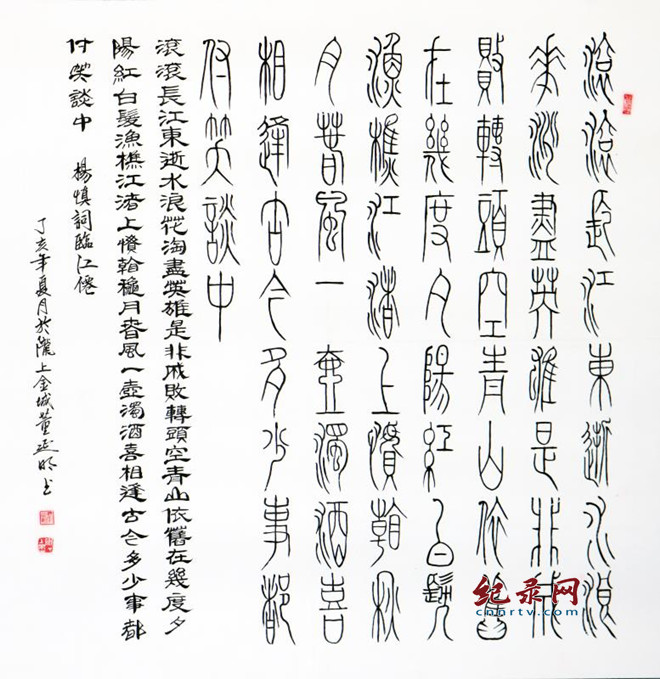 滾滾長江東逝水浪
花淘盡英雄是非成
敗轉頭空青山依舊
在幾度夕陽紅白髮
漁樵江渚上慣看秋
月春風一壺濁酒喜
相逢古今多少事都
付笑談中
滾滾長江東逝水浪花淘盡英雄是非成敗轉頭空青山依舊在幾度夕
陽紅白髮漁樵江渚上慣看穐月春風一壺濁酒喜相逢古今多少事都
付笑談中 楊慎詞臨江僊
丁亥年夏月於隴上金城董延明書
纪录网
cnnrtv.com